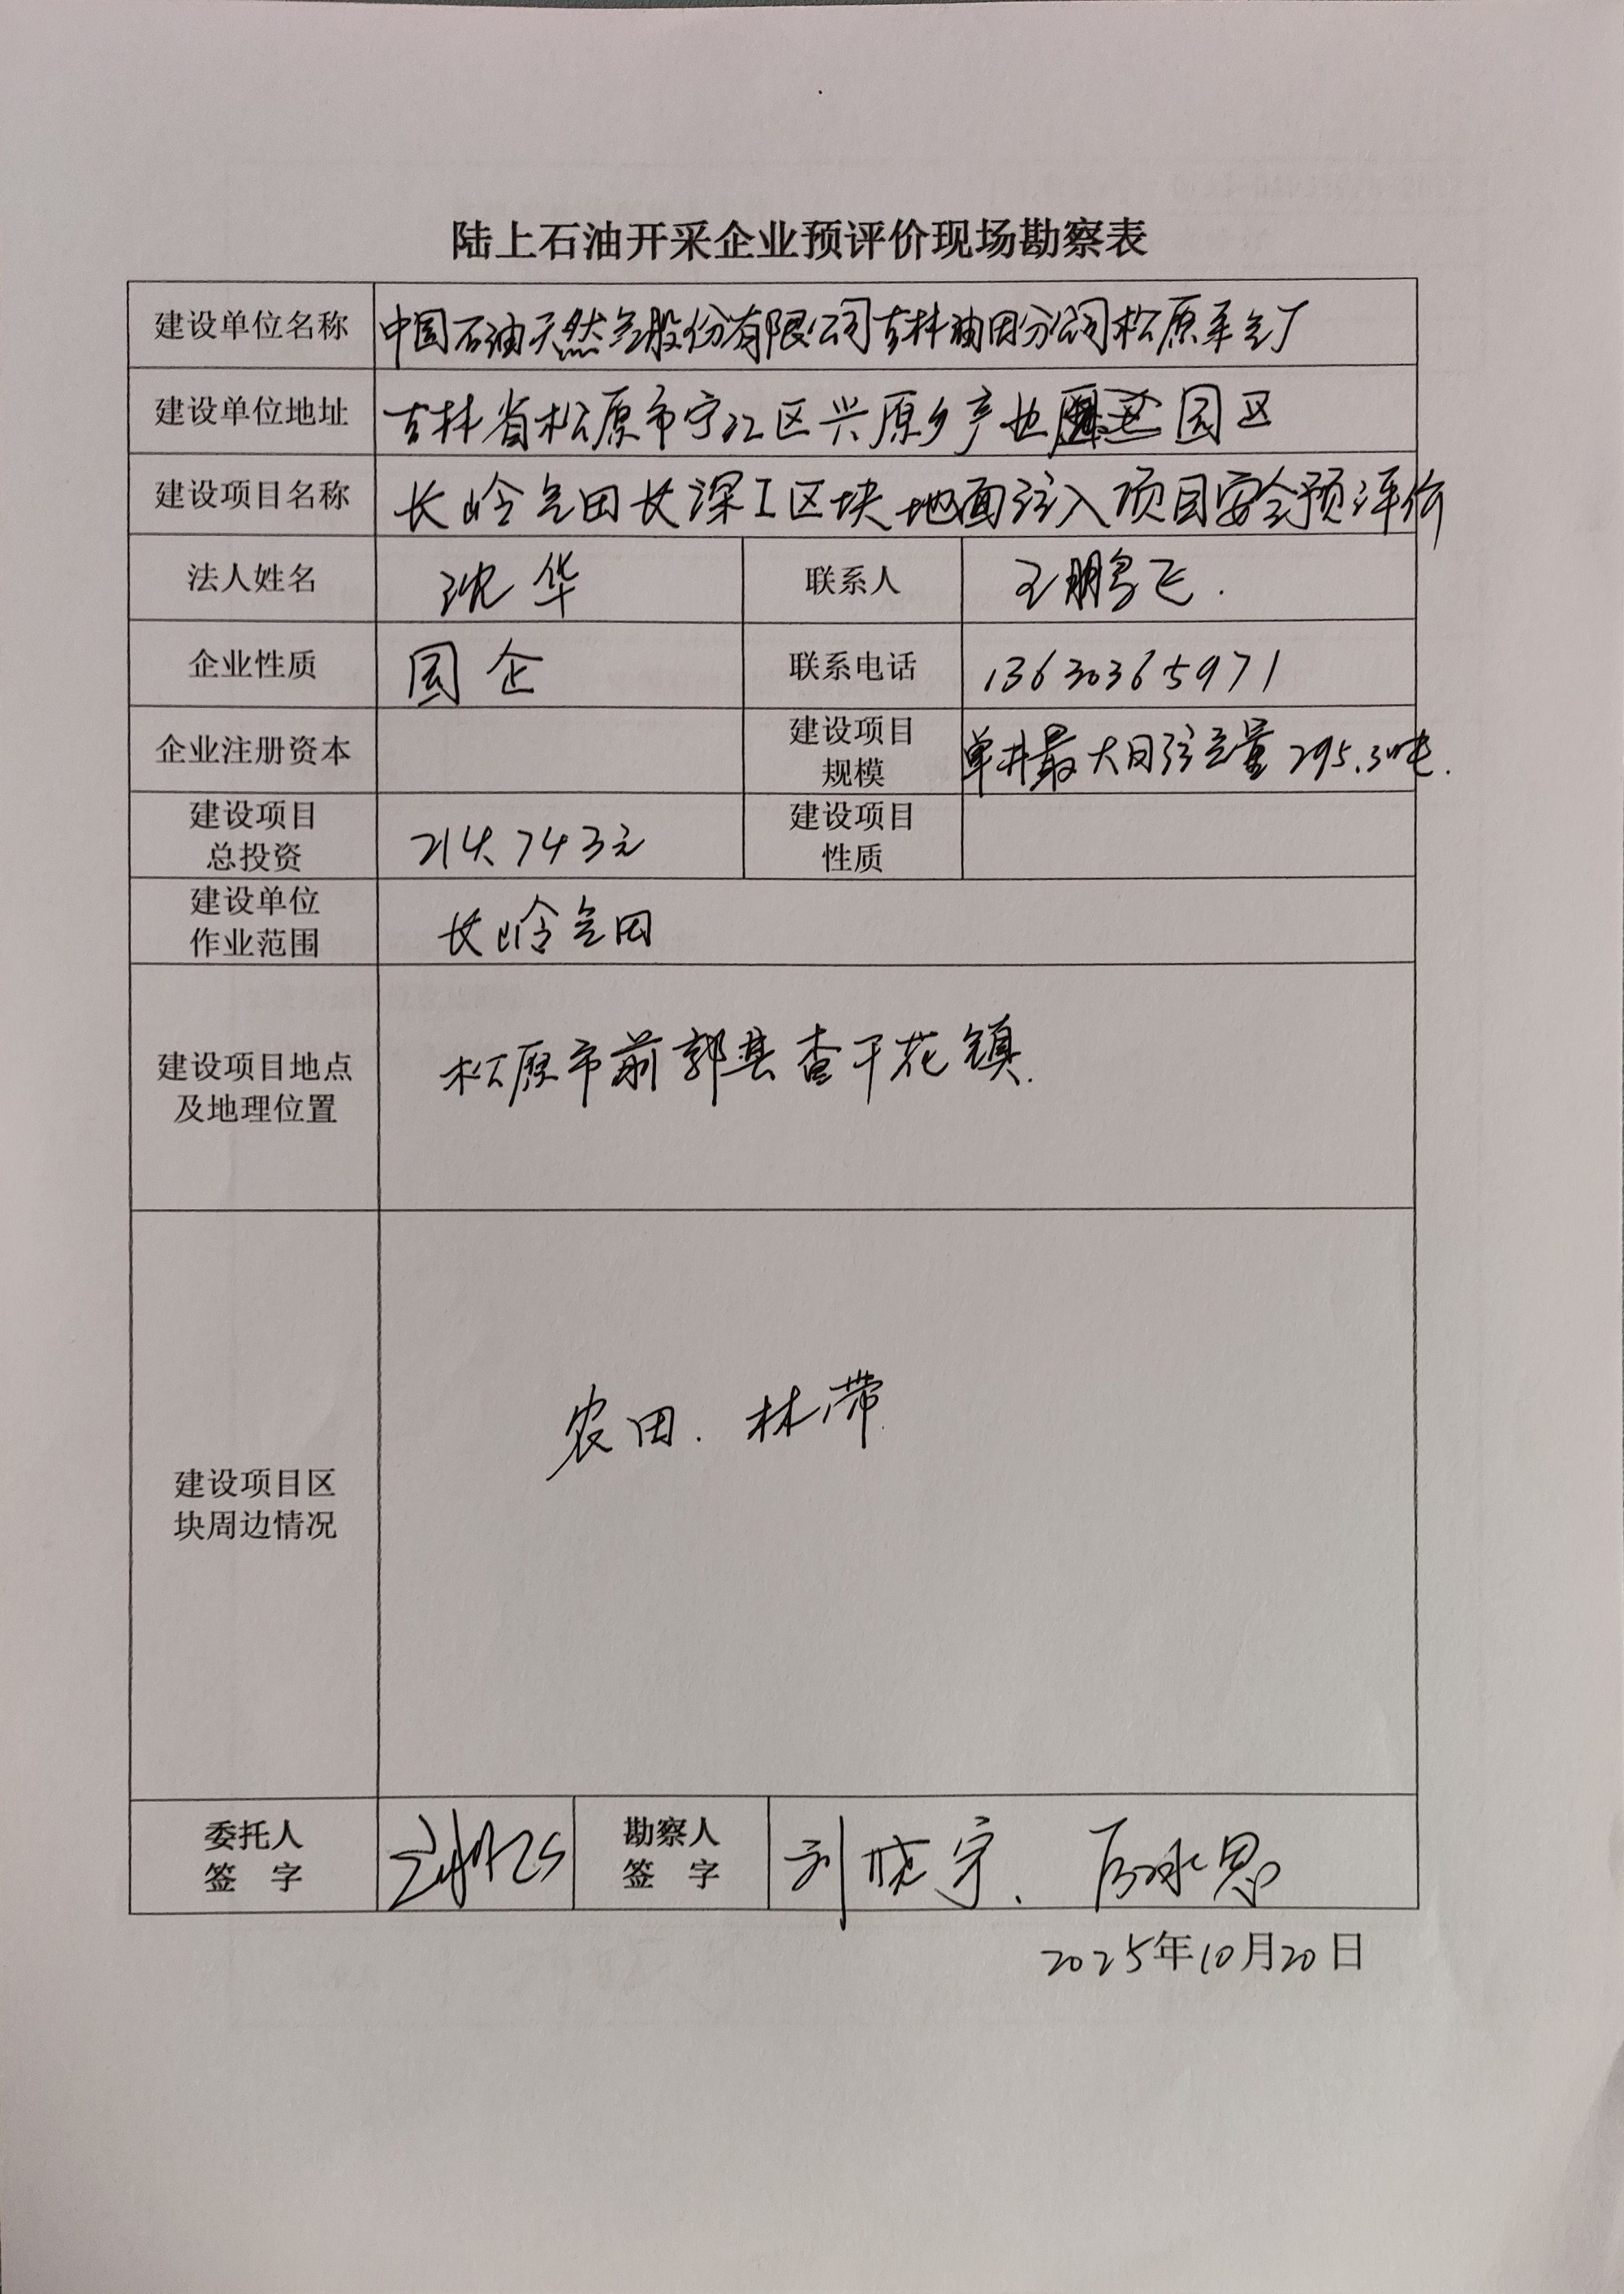 陆上石油开采企业预评价现场勘察表
建设单位名称 中国石油天然气股份有限公司吉林油田分公司松原采气厂
建设单位地址 吉林省松原市宁江区兴原乡产业园区
建设项目名称 长岭气田长深1区块地面注入项目安全预评价
法人姓名 沈华 联系人 王鹏飞.
企业性质 国企 联系电话 13630365971
企业注册资本 建设项目规模 单井最大日注气量295.3吨.
建设项目总投资 214.743元 建设项目性质
建设单位作业范围 长岭气田
建设项目地点及地理位置 松原市前郭县查干花镇.
建设项目区块周边情况 农田.林带.
委托人签字 勘察人签字 刘晓宇、
2025年10月20日